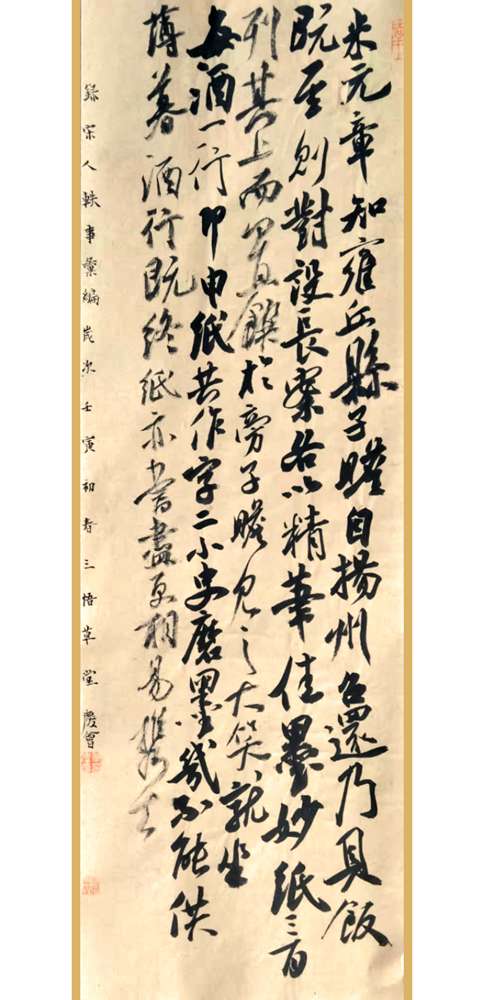 米元章知雍丘縣子瞻自揚州召還乃具飯
既至則對設長案各以精筆佳墨妙紙三百
列其上而置饌於旁子瞻見之大笑就坐
每酒一行即申紙共作字二小史磨墨幾不能供
薄暮酒行既終紙亦書盡更相易攜去
錄宋人軼事彙編歲次壬寅初春三悟草堂慶會